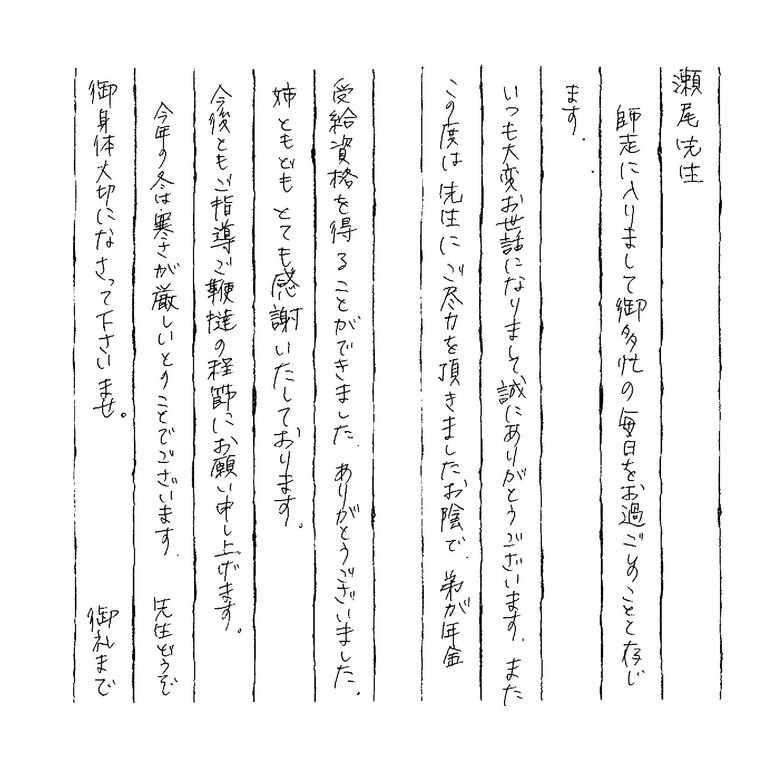 瀬尾先生
師走に入りまして御多忙の毎日をお過ごしのことと存じ
ます.
いつも大変お世話になりまして、誠にありがとうございます. また
この度は先生にご尽力を頂きましたお陰で、弟が年金
受給資格を得ることができました. ありがとうございました.
姉ともども とても感謝いたしております。
今後ともご指導ご鞭撻の程節にお願い申し上げます。
今年の冬は寒さが厳しいとのことでございます. 先生どうぞ
御身体大切になさって下さいませ。 御礼まで